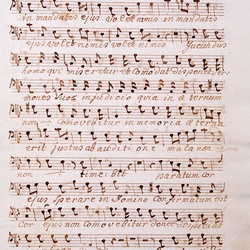 in mandatis ejus volet nimis in mandatis
ejus volet nimis volet nimis jucundus
homo qui miseretur et Comodat disponet ser
mones Suos in judicio quia in æternum
non Comovebitur in memoria æterna
erit justus ab auditione mala non
non timebit paratum cor
ejus sperare in Domino Confirmatum est
cor ejus non Comovebitur donec despiciat